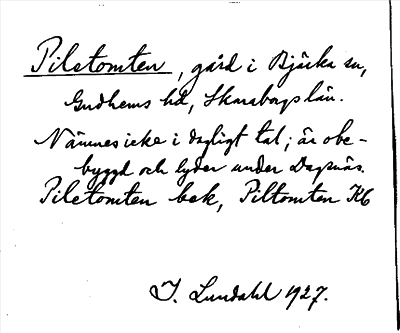 Piletomten, gård i Bjärka sn,
Gudhems hd, Skaraborgs län.
Nämnes icke i dagligt tal; är obe-
byggd och lyder under Dagsnäs.
Piletomten bek, Piltomten K6
I. Lundahl 1927.